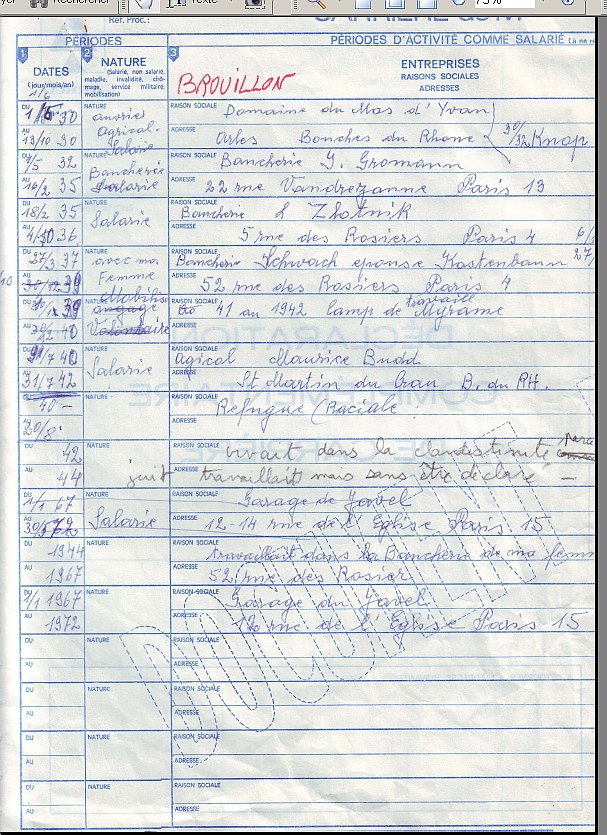 Rechercher
Texte
75%
Réf. Proc. :
PÉRIODES
PÉRIODES D'ACTIVITÉ COMME SALARIÉ (à ne re
1 2 3
DATES
(jour/mois/an)
NATURE
(Salarié, non salarié, maladie, invalidité, chômage, service militaire, mobilisation)
BROUILLON
ENTREPRISES
RAISONS SOCIALES
ADRESSES
DU 30 NATURE ouvrier RAISON SOCIALE Domaine du Mas d'Yvan
Agricol-
AU 13/10 30 Salarie ADRESSE Arles Bouches du Rhone 30/32 Knop
DU 32 NATURE Boucherie RAISON SOCIALE Boucherie J. Gromann
AU 16/2 35 Salarie ADRESSE 22 rue Vandrezanne Paris 13
DU 18/2 35 NATURE Salarie RAISON SOCIALE Boucherie Zlotnik
AU 36 ADRESSE 5 rue des Rosiers Paris 4
DU 27/3 37 NATURE avec ma RAISON SOCIALE Boucherie Schwach epouse Kastenbaum
AU 39 Femme ADRESSE 52 rue des Rosiers Paris 4
DU 39 Mobilisé engagé RAISON SOCIALE 41 au 1942 camp de travaille Myrame
AU 40 Volontaire ADRESSE
DU 40 NATURE Salarie RAISON SOCIALE Agicol Maurice Budd
AU 31/7 42 ADRESSE St Martin du Crau B. du RH.
DU 40 - NATURE RAISON SOCIALE Refugue (Raciale
AU ADRESSE
DU 42 NATURE RAISON SOCIALE vivait dans la clandestinité parce
AU 44 juif ADRESSE travaillait mais sans être déclaré -
DU 1/1 67 NATURE Salarie RAISON SOCIALE Garage de Javel
AU 72 ADRESSE 12-14 rue de l'Eglise Paris 15
DU 1944 NATURE RAISON SOCIALE travaillait dans la Boucherie de ma fem
AU 1967 ADRESSE 52 rue des Rosier
DU 1/1 1967 NATURE RAISON SOCIALE Garage du Javel
AU 1972 ADRESSE rue de l'Eglise Paris 15
DU NATURE RAISON SOCIALE
AU ADRESSE
DU NATURE RAISON SOCIALE
AU ADRESSE
DU NATURE RAISON SOCIALE
AU ADRESSE
DU NATURE RAISON SOCIALE
AU ADRESSE